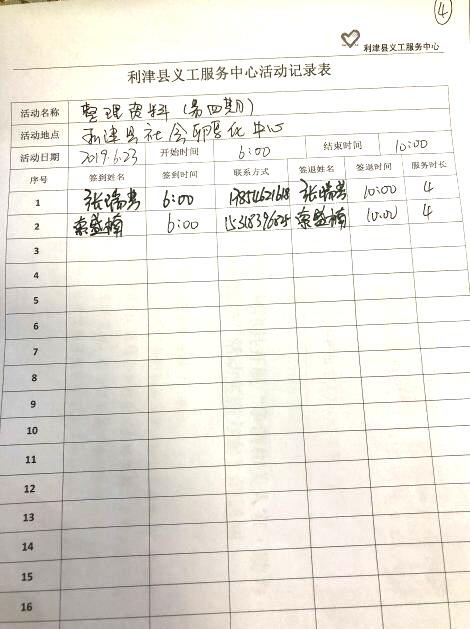 ④
利津县义工服务中心
利津县义工服务中心活动记录表
活动名称 整理资料(第四期)
活动地点 利津县社会孵化中心
活动日期 2019.6.23 开始时间 6:00 结束时间 10:00
序号 签到姓名 签到时间 联系方式 签退姓名 签退时间 服务时长
1 张瑞 6:00 17854621618 张瑞 10:00 4
2 盛楠 6:00 盛楠 10:00 4
3
4
5
6
7
8
9
10
11
12
13
14
15
16